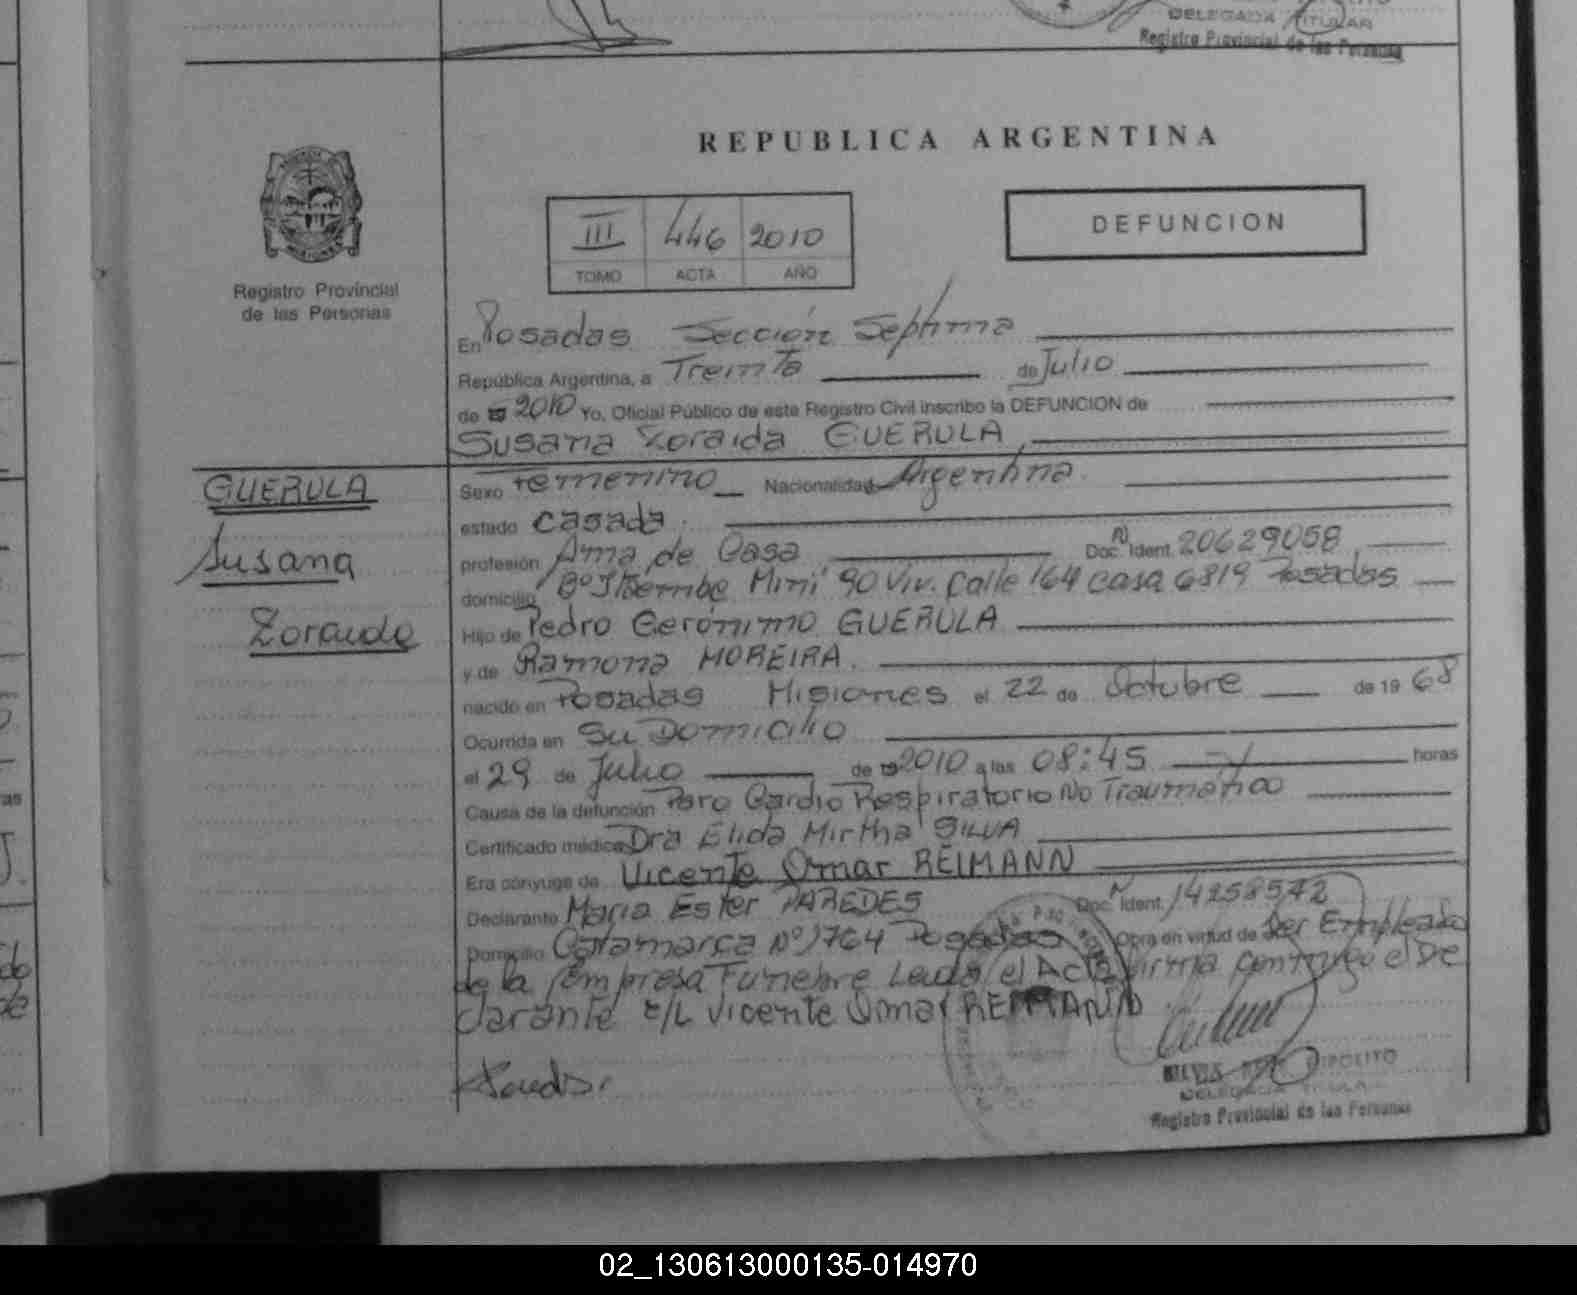 DELEGADA TITULAR
Registro Provincial de las Personas
REPUBLICA ARGENTINA
III 446 2010
TOMO ACTA AÑO
DEFUNCION
Registro Provincial
de las Personas
En Posadas Sección Septima
República Argentina, a Treinta de Julio
de 19 2010 Yo, Oficial Público de este Registro Civil inscribo la DEFUNCION de
Susana Zoraida GUERULA
GUERULA
Susana
Zoraida
Sexo Femenino Nacionalidad Argentina
estado Casada
profesión Ama de Casa Doc. N Ident. 20629058
domicilio Bº Itaembe Mini 90 Viv. Calle 164 casa 6819 Posadas
Hijo de Pedro Gerónimo GUERULA
y de Ramona MOREIRA.
nacido en Posadas Misiones el 22 de Octubre de 19 68
Ocurrida en Su Domicilio
el 29 de Julio de 19 2010 a las 08:45 horas
Causa de la defunción Paro Cardio Respiratorio No Traumático
Certificado médico Dra Elida Mirtha SILVA
Era cónyuge de Vicente Omar REIMANN
Declarante Maria Ester PAREDES Doc. N Ident. 14258542
Domicilio Catamarca Nº 1764 Posadas Obra en virtud de Ser Empleada
de la Empresa Funebre Leida el Acta firma conmigo el De
clarante E/L Vicente Omar REIMANN
HIPOLITO
DELEGADA TITULAR
Registro Provincial de las Personas
02_130613000135-014970